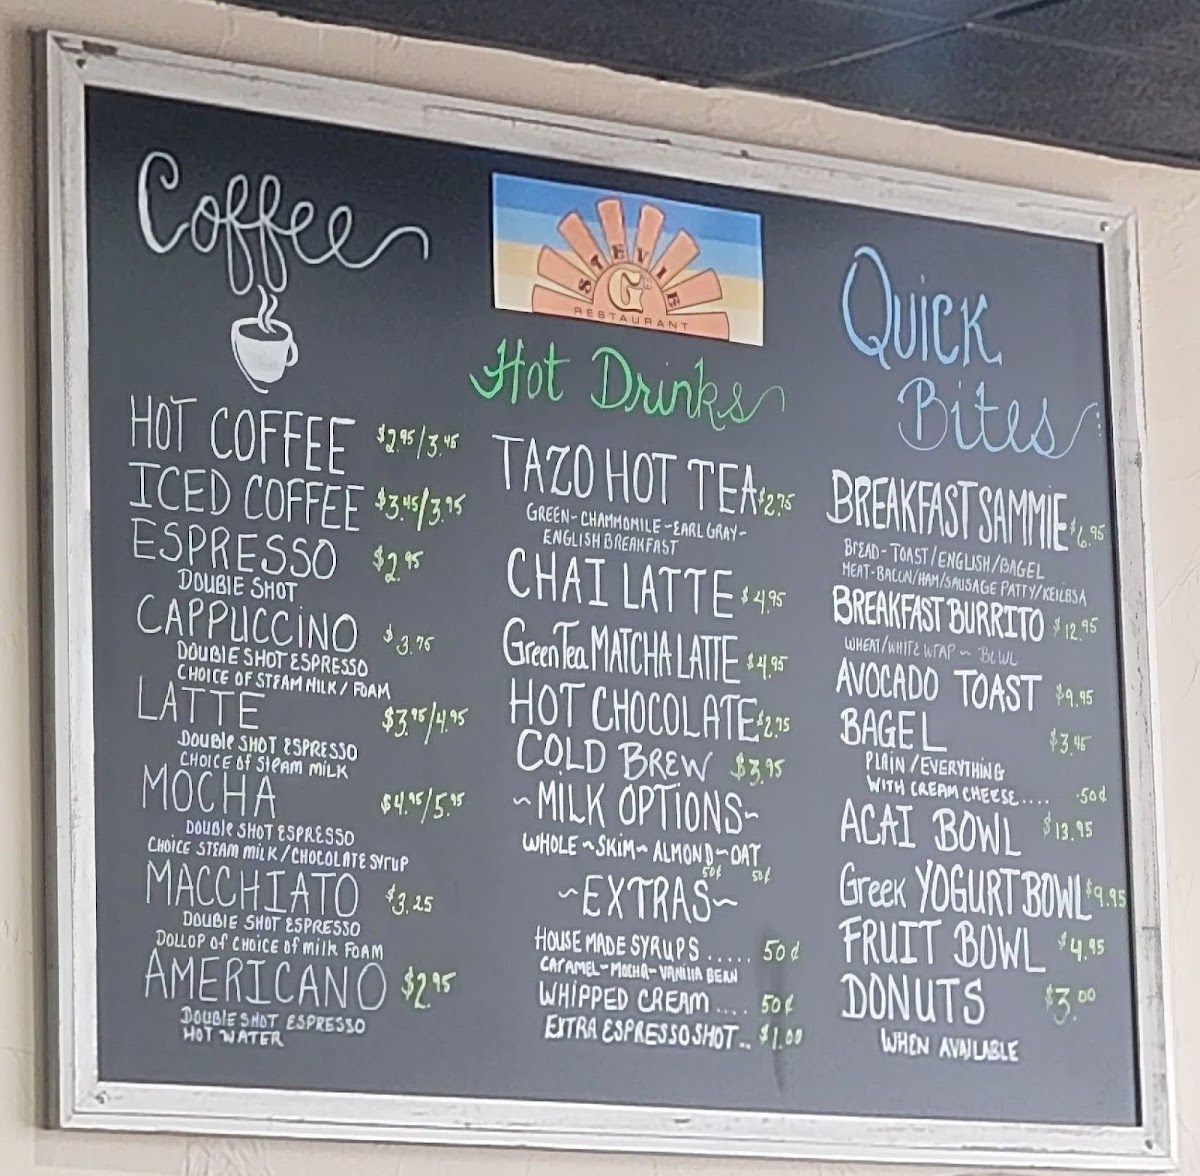 Coffee
HOT COFFEE $2.95/3.45
ICED COFFEE $3.45/3.95
ESPRESSO $2.95
DOUBLE SHOT
CAPPUCCINO $3.75
DOUBLE SHOT ESPRESSO
CHOICE OF STEAM MILK / FOAM
LATTE $3.95/4.95
DOUBLE SHOT ESPRESSO
CHOICE OF STEAM MILK
MOCHA $4.95/5.95
DOUBLE SHOT ESPRESSO
CHOICE STEAM MILK / CHOCOLATE SYRUP
MACCHIATO $3.25
DOUBLE SHOT ESPRESSO
DOLLOP OF CHOICE OF MILK FOAM
AMERICANO $2.95
DOUBLE SHOT ESPRESSO
HOT WATER
STEVIE
G's
RESTAURANT
Hot Drinks
TAZO HOT TEA $2.75
GREEN - CHAMMOMILE - EARL GRAY -
ENGLISH BREAKFAST
CHAI LATTE $4.95
Green Tea MATCHA LATTE $4.95
HOT CHOCOLATE $2.75
COLD BREW $3.95
~MILK OPTIONS~
WHOLE ~ SKIM ~ ALMOND ~ OAT
50¢ 50¢
~EXTRAS~
HOUSE MADE SYRUPS ..... 50¢
CARAMEL - MOCHA - VANILLA BEAN
WHIPPED CREAM .... 50¢
EXTRA ESPRESSO SHOT .. $1.00
Quick
Bites
BREAKFAST SAMMIE $6.95
BREAD - TOAST / ENGLISH / BAGEL
MEAT - BACON / HAM / SAUSAGE PATTY / KEILBSA
BREAKFAST BURRITO $12.95
WHEAT / WHITE WRAP ~ BOWL
AVOCADO TOAST $9.95
BAGEL $3.45
PLAIN / EVERYTHING
WITH CREAM CHEESE .... .50¢
ACAI BOWL $13.95
Greek YOGURT BOWL $9.95
FRUIT BOWL $4.95
DONUTS $3.00
WHEN AVAILABLE